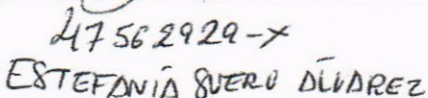 47562929-X
ESTEFANÍA SUERO ALVAREZ